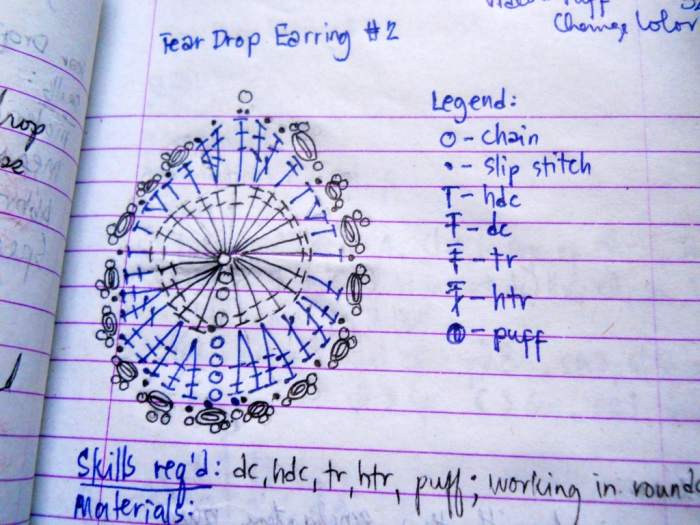 Puff
Change Color
Tear Drop Earring #2
Legend:
o - chain
• - slip stitch
- hdc
- dc
- tr
- htr
- puff
Skills req'd: dc, hdc, tr, htr, puff; working in rounds
Materials: